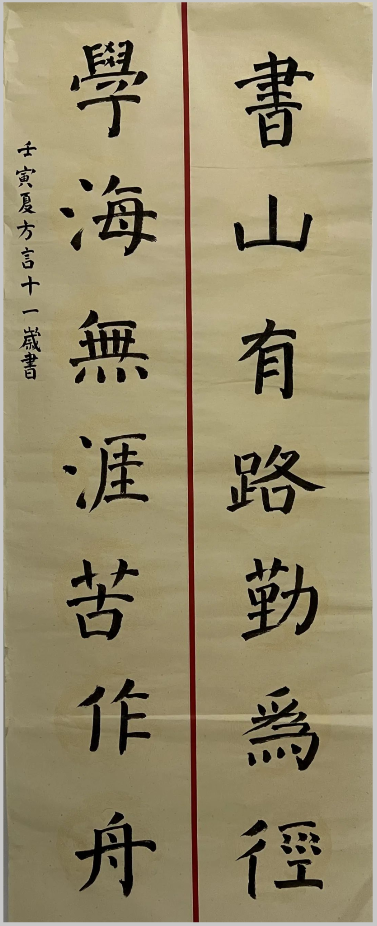 書山有路勤為徑
學海無涯苦作舟
壬寅夏方言十一歲書